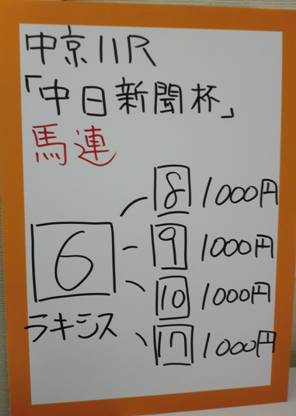 中京11R
「中日新聞杯」
馬連
8 1000円
9 1000円
6
10 1000円
ラキシス
17 1000円